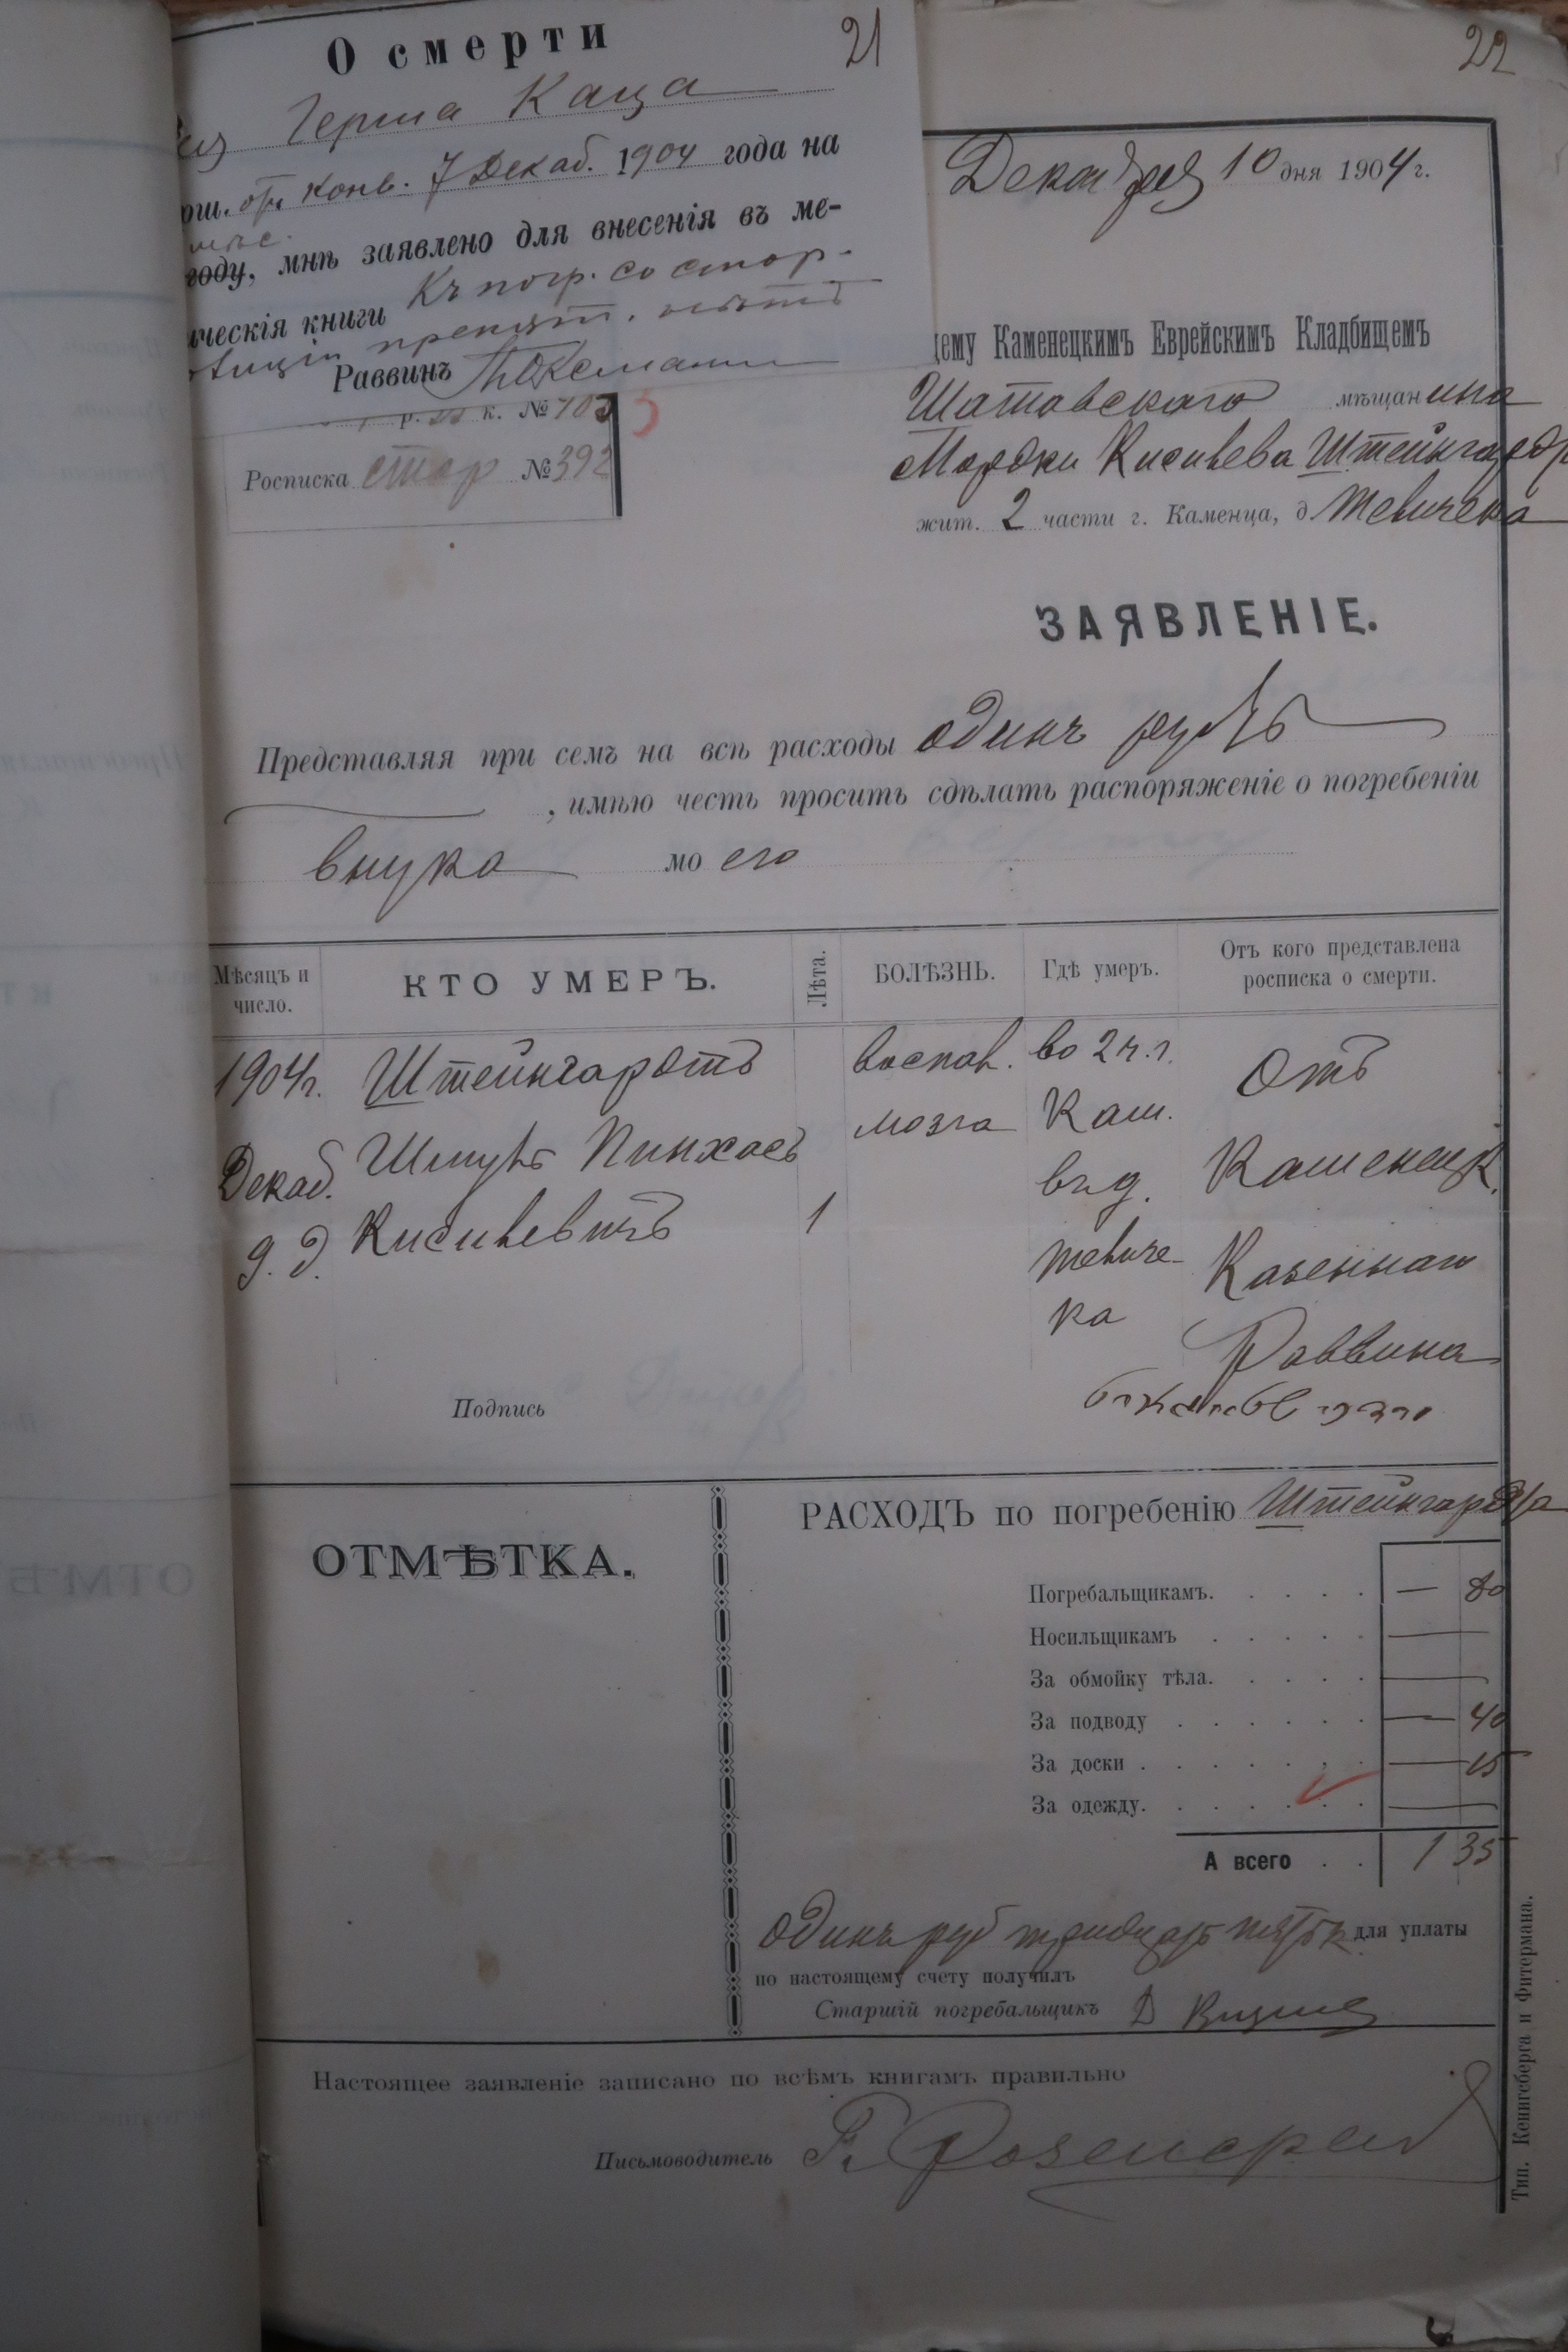 О смерти
21
22
Герша Каца
от конв. 7 Декаб. 1904 года на
году, мнѣ заявлено для внесенія въ ме-
ческія книги Къ погр. со стор.
препят. нѣтъ
Раввинъ
р. к. № 703
Росписка стор № 392
Декабря 10 дня 1904 г.
щему Каменецкимъ Еврейскимъ Кладбищемъ
Шатавскаго мѣщанина
Мордки Кисилева Штейнгард
жит. 2 части г. Каменца, д Тевичека
ЗАЯВЛЕНІЕ.
Представляя при семъ на всѣ расходы одинъ рубль
, имѣю честь просить сдѣлать распоряженіе о погребеніи
внука мо его
Мѣсяцъ и число.
КТО УМЕРЪ.
Лѣта.
БОЛѢЗНЬ.
Гдѣ умеръ.
Отъ кого представлена росписка о смерти.
1904г. Штейнгардтъ воспал. во 2 ч. г. Отъ
Декаб. Шмуль Пинхасъ мозга Кам. Каменецк.
9. д. Кисилевичъ 1 въ д. Казеннаго
Тевиче- Раввина
ка
Подпись
ОТМѢТКА.
РАСХОДЪ по погребенію Штейнгард
Погребальщикамъ. — 80
Носильщикамъ —
За обмойку тѣла. —
За подводу — 40
За доски — 15
За одежду. —
А всего 1 35
одинъ руб тридцать пять к для уплаты
по настоящему счету получилъ
Старшій погребальщикъ Д
Настоящее заявленіе записано по всѣмъ книгамъ правильно
Письмоводитель
Тип. Кенигсберга и Фитермана.